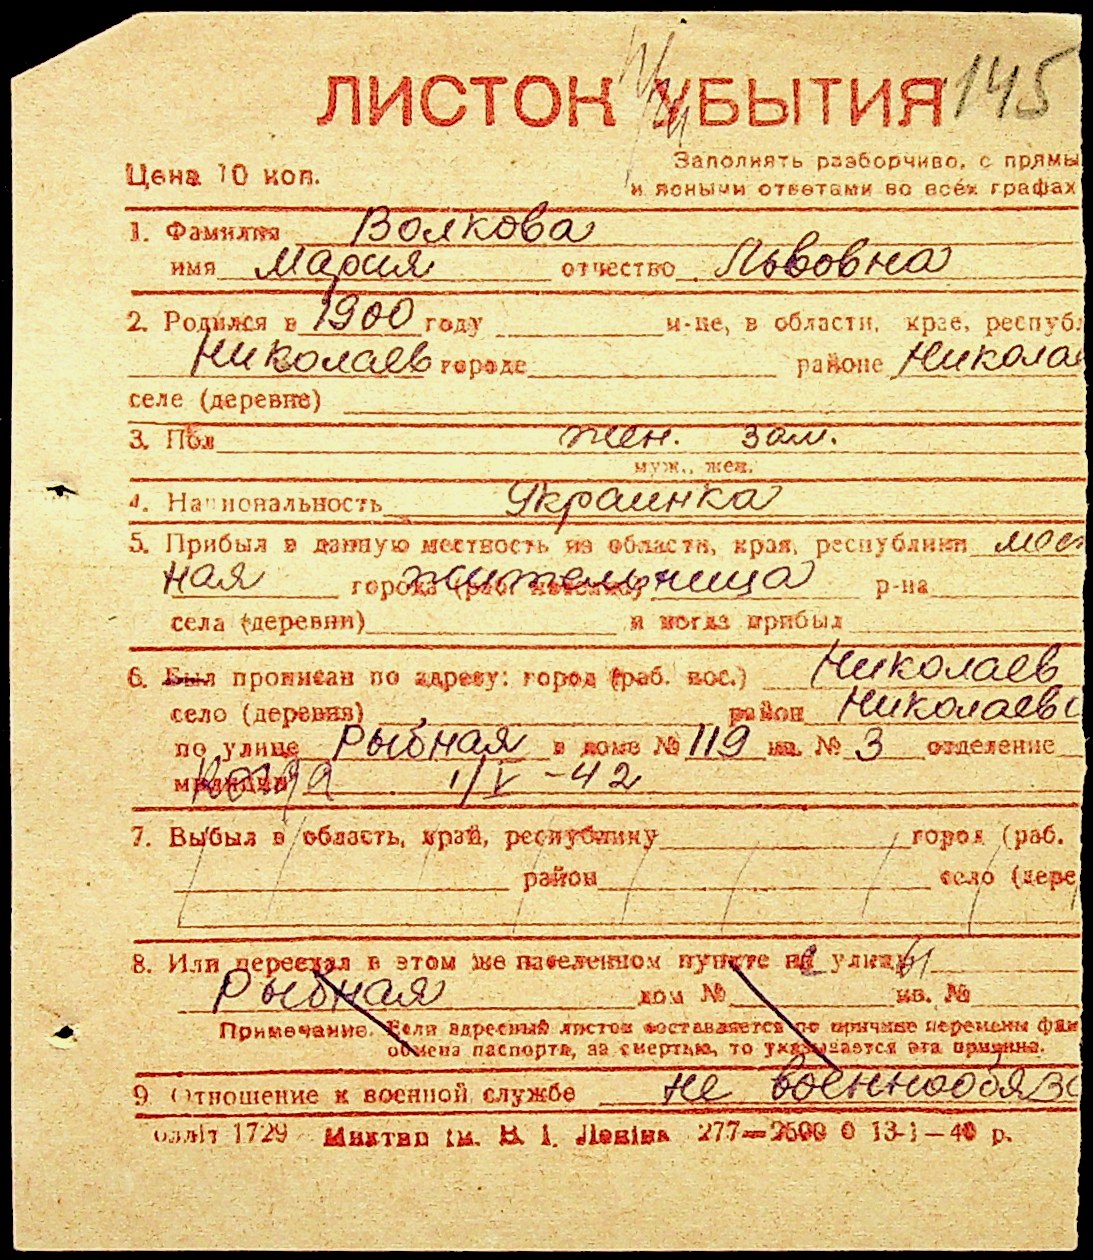 ЛИСТОК УБЫТИЯ 145
Цена 10 коп.
Заполнять разборчиво, с прямы
и ясными ответами во всех графах
1. Фамилия Волкова
имя Мария отчество Львовна
2. Родился в 1900 году м-це, в области, крае, республ
Николаев городе районе Никола
селе (деревне)
3. Пол жен. зам.
муж., жен.
4. Национальность Украинка
5. Прибыл в данную местность из области, края, республики мест
ная города (раб. жительница р-на
села (деревни) и когда прибыл
6. Был прописан по адресу: город (раб. пос.) Николаев
село (деревня) район Николаевс
по улице Рыбная в доме № 119 кв. № 3 отделение
милиции когда 1/V-42
7. Выбыл в область, край, республику город (раб.
район село (дере
8. Или переехал в этом же населенном пункте с улицы
Рыбная дом № кв. №
Примечание. Если адресный листок составляется по причине перемены фам
обмена паспорта, за смертью, то указывается эта причина.
9. Отношение к военной службе не военнообяза
олліт 1729 Миктип ім. В. І. Леніна 277—2500 0 13-1—40 р.